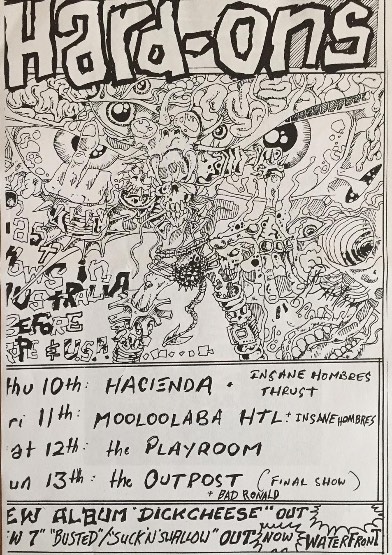 Hard-ons
AST
OWS in
USTRALIA
EFORE
PE & USA
hu 10th: HACIENDA • INSANE HOMBRES
THRUST
ri 11th: MOOLOOLABA HTL + INSANE HOMBRES
at 12th: the PLAYROOM
un 13th: the OUTPOST (FINAL SHOW)
+ BAD RONALD
EW ALBUM "DICKCHEESE" OUT
W 7" "BUSTED"/"SUCK'N'SWALLOW" OUT NOW WATERFRON